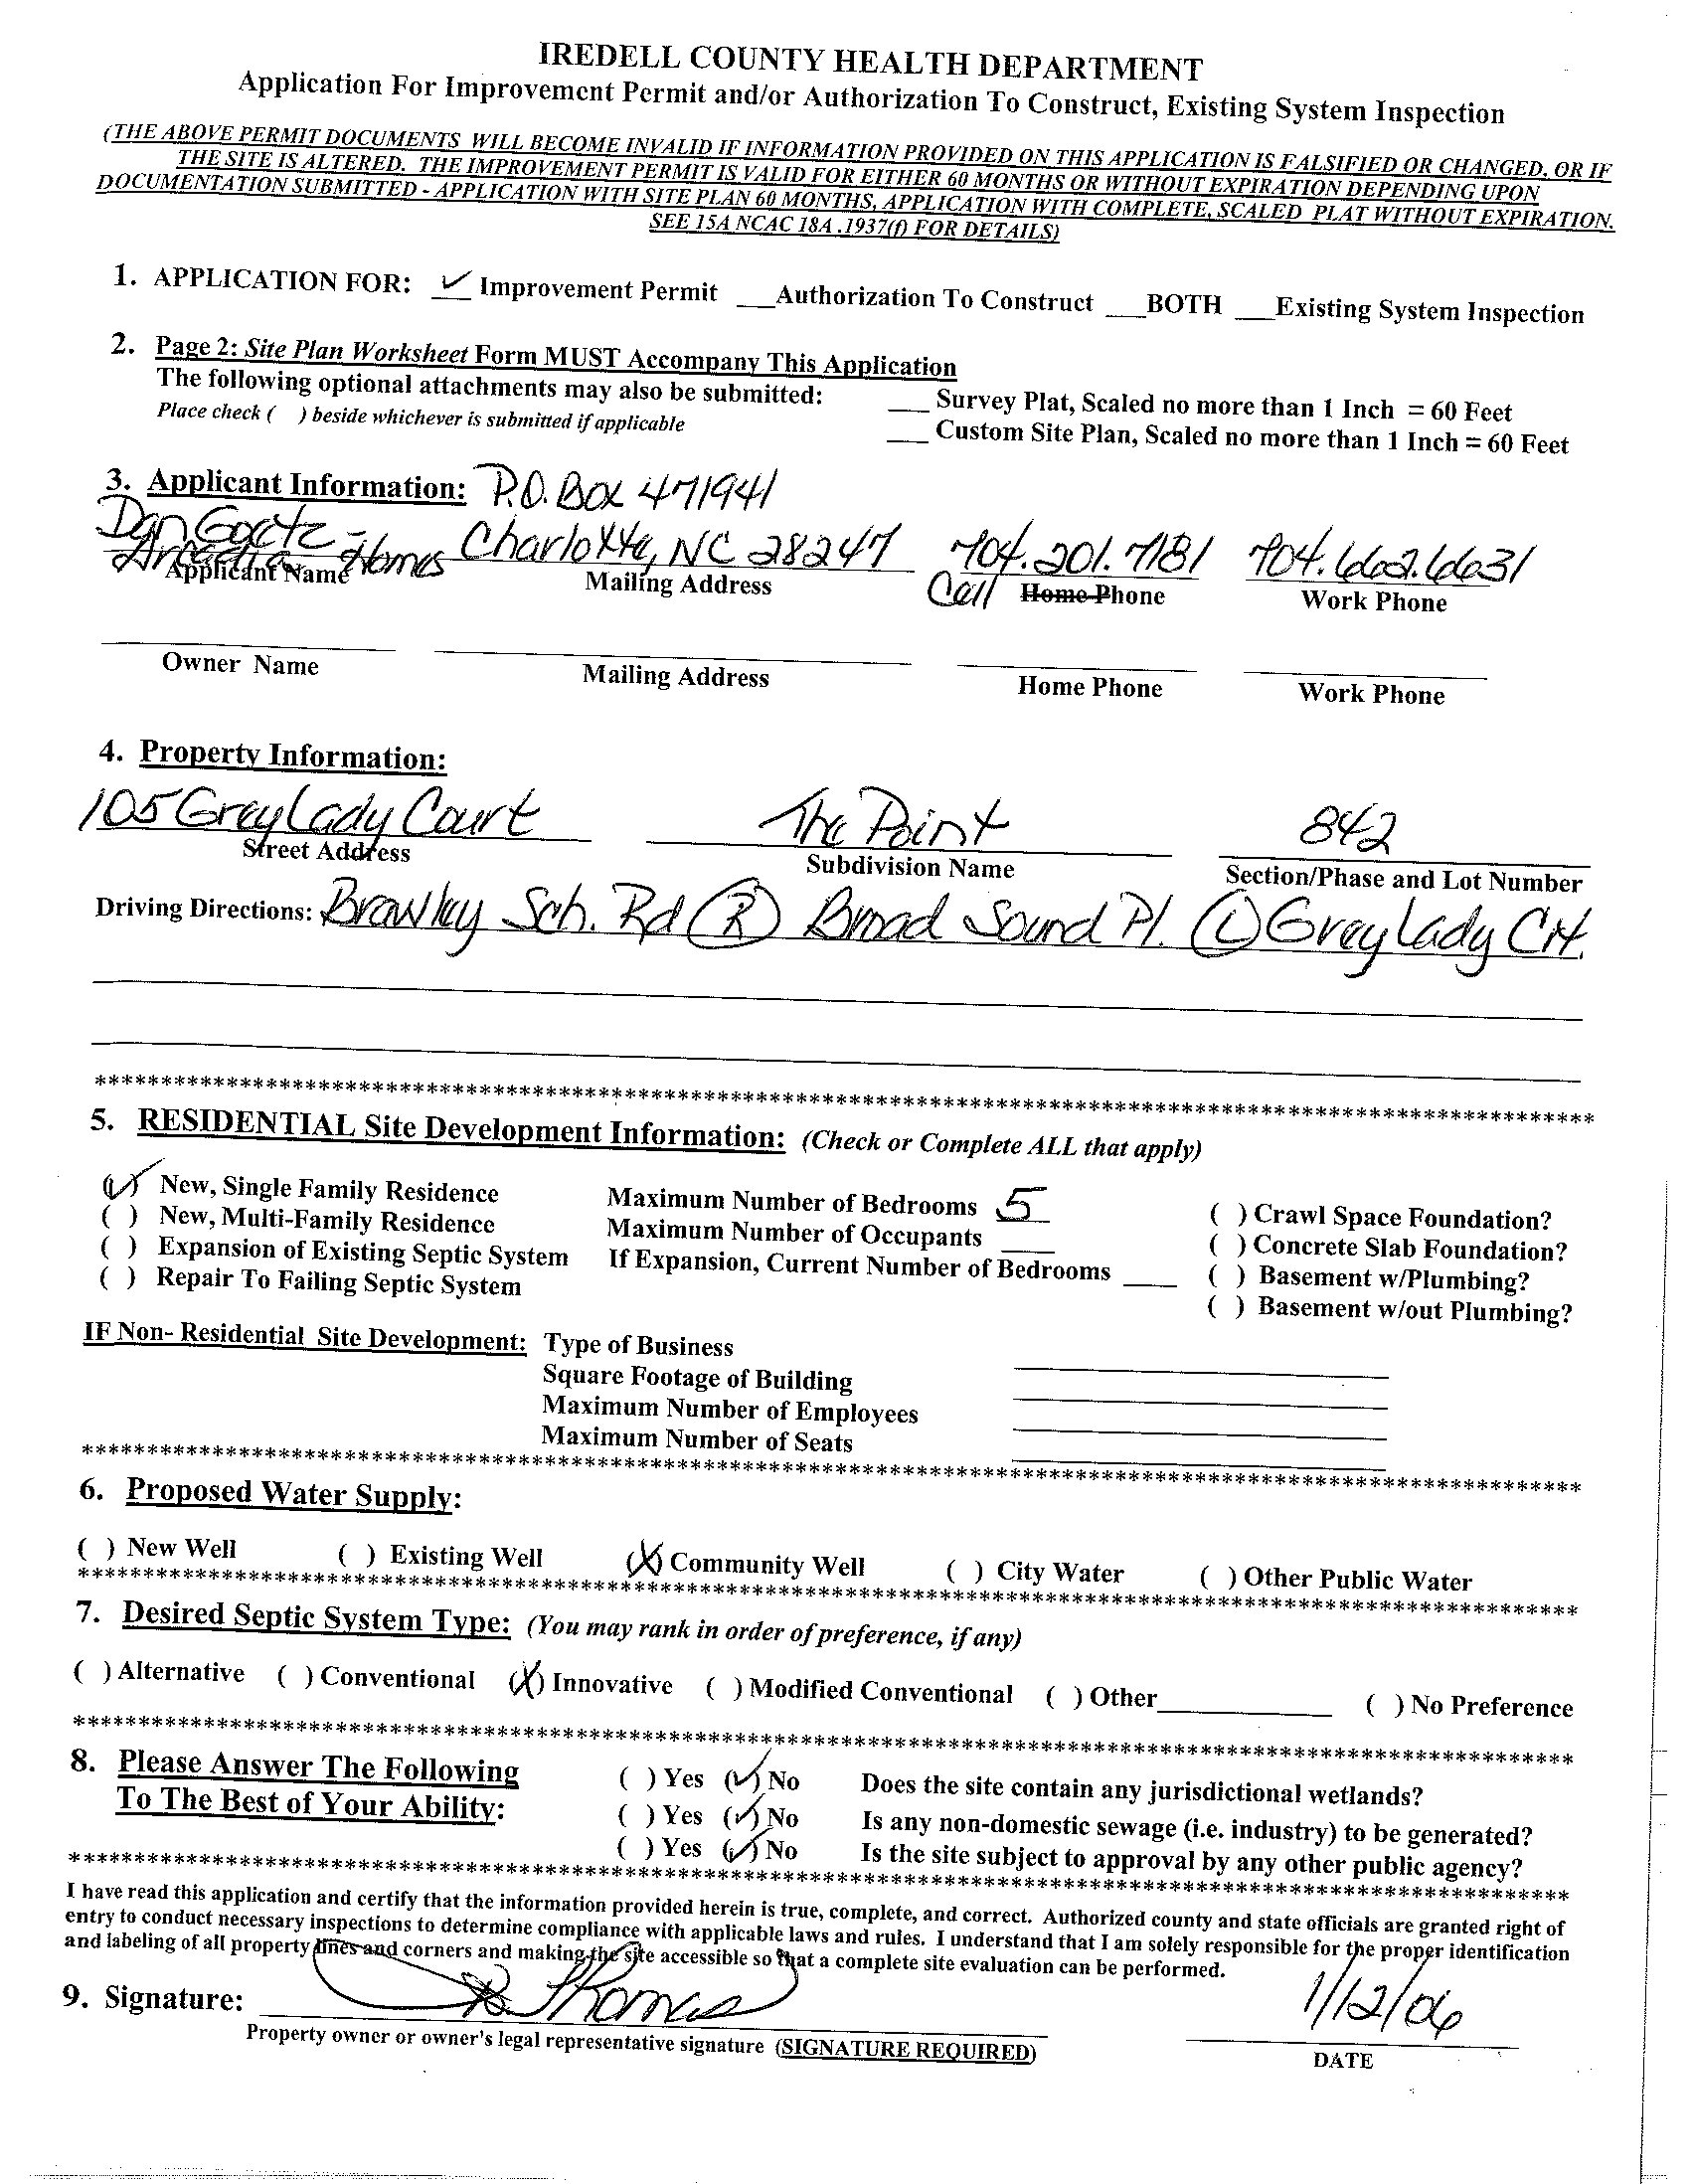 IREDELL COUNTY HEALTH DEPARTMENT
Application For Improvement Permit and/or Authorization To Construct, Existing System Inspection
(THE ABOVE PERMIT DOCUMENTS WILL BECOME INVALID IF INFORMATION PROVIDED ON THIS APPLICATION IS FALSIFIED OR CHANGED, OR IF
THE SITE IS ALTERED. THE IMPROVEMENT PERMIT IS VALID FOR EITHER 60 MONTHS OR WITHOUT EXPIRATION DEPENDING UPON
DOCUMENTATION SUBMITTED - APPLICATION WITH SITE PLAN 60 MONTHS, APPLICATION WITH COMPLETE, SCALED PLAT WITHOUT EXPIRATION.
SEE 15A NCAC 18A .1937(f) FOR DETAILS)
1. APPLICATION FOR: ✓ Improvement Permit ___Authorization To Construct ___BOTH ___Existing System Inspection
2. Page 2: Site Plan Worksheet Form MUST Accompany This Application
The following optional attachments may also be submitted: ___ Survey Plat, Scaled no more than 1 Inch = 60 Feet
Place check ( ) beside whichever is submitted if applicable ___ Custom Site Plan, Scaled no more than 1 Inch = 60 Feet
3. Applicant Information: P.O. Box 471941
Dan Goetz -
Arcadia Homes Charlotte, NC 28247 704.201.7181 704.662.6631
Applicant Name Mailing Address Cell Home Phone Work Phone
Owner Name Mailing Address Home Phone Work Phone
4. Property Information:
105 Grey Lady Court The Point 842
Street Address Subdivision Name Section/Phase and Lot Number
Driving Directions: Brawley Sch. Rd (R) Broad Sound Pl. (L) Grey Lady Crt.
****
5. RESIDENTIAL Site Development Information: (Check or Complete ALL that apply)
(✓) New, Single Family Residence Maximum Number of Bedrooms 5 ( ) Crawl Space Foundation?
( ) New, Multi-Family Residence Maximum Number of Occupants ___ ( ) Concrete Slab Foundation?
( ) Expansion of Existing Septic System If Expansion, Current Number of Bedrooms ___ ( ) Basement w/Plumbing?
( ) Repair To Failing Septic System ( ) Basement w/out Plumbing?
IF Non- Residential Site Development: Type of Business
Square Footage of Building
Maximum Number of Employees
Maximum Number of Seats
****
6. Proposed Water Supply:
( ) New Well ( ) Existing Well (X) Community Well ( ) City Water ( ) Other Public Water
****
7. Desired Septic System Type: (You may rank in order of preference, if any)
( ) Alternative ( ) Conventional (X) Innovative ( ) Modified Conventional ( ) Other___ ( ) No Preference
****
8. Please Answer The Following ( ) Yes (✓) No Does the site contain any jurisdictional wetlands?
To The Best of Your Ability: ( ) Yes (✓) No Is any non-domestic sewage (i.e. industry) to be generated?
( ) Yes (✓) No Is the site subject to approval by any other public agency?
****
I have read this application and certify that the information provided herein is true, complete, and correct. Authorized county and state officials are granted right of
entry to conduct necessary inspections to determine compliance with applicable laws and rules. I understand that I am solely responsible for the proper identification
and labeling of all property lines and corners and making the site accessible so that a complete site evaluation can be performed.
9. Signature: Thomas 1/12/06
Property owner or owner's legal representative signature (SIGNATURE REQUIRED) DATE